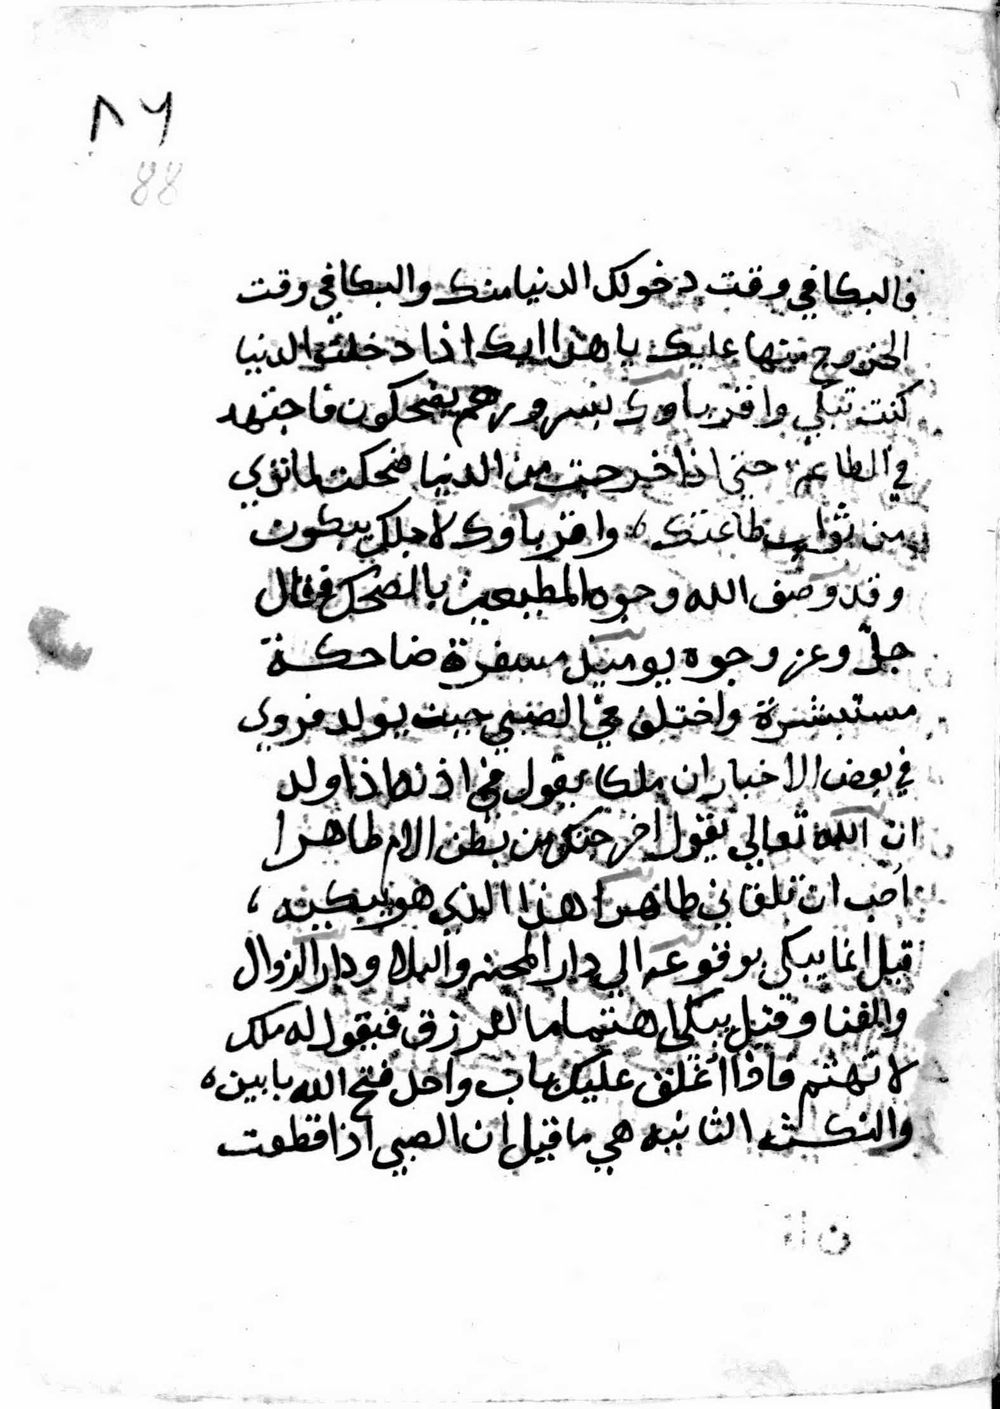 ٨٦
88
فالبكا في وقت دخولك الدنيا منك والبكا في وقت
الخروج منها عليك يا هذا انك اذا دخلت الدنيا
كنت تبكي واقرباوك بسرورهم يضحكون فاجتهد
في الطاعة حتى اذا خرجت من الدنيا ضحكت لما تري
من ثواب طاعتك واقرباوك لاجلك يبكون
وقد وصف الله وجوه المطيعين بالضحك فقال
جلّ وعز وجوه يوميذ مسفرة ضاحكة
مستبشرة واختلف في الصبي حيث يولد فروي
في بعض الاخبار ان ملكا يقول في اذنه اذا ولد
ان الله تعالي يقول اخرجتك من بطن الام طاهرا
احب ان تلقاني طاهرا هذا الذي هو يبكيه ،
قيل انما يبكي بوقوعه الي دار المحنه والبلا ودار الزوال
والفنا وقيل يبكي اهتماما للرزق فيقول له ملك
لا تهتم فاذا اغلق عليك باب واحد فتح الله بابين ،
والنكته الثانيه هي ما قيل ان الصبي اذا قطعت